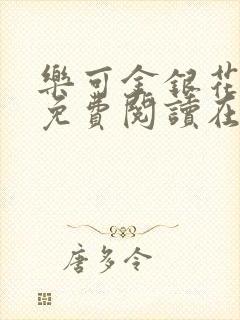 樂可金銀花
免費閱讀在
唐多令